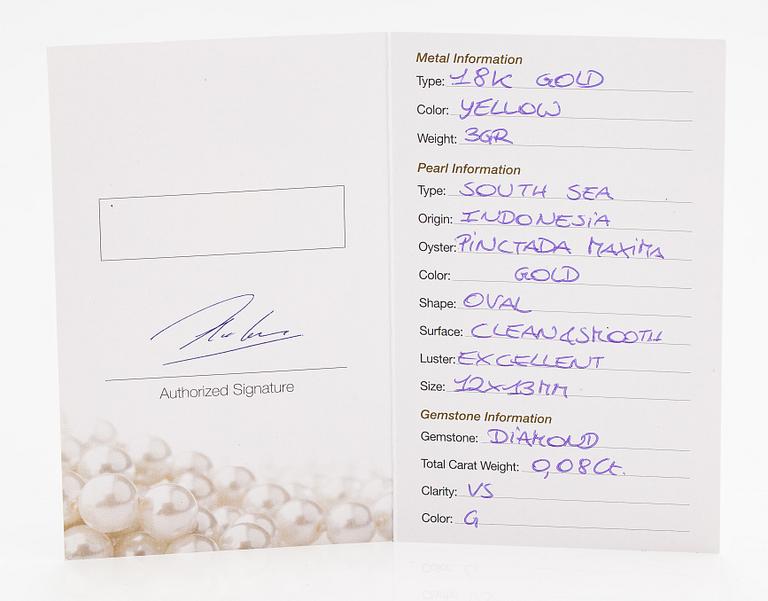 Authorized Signature
Metal Information
Type: 18K GOLD
Color: YELLOW
Weight: 3GR
Pearl Information
Type: SOUTH SEA
Origin: INDONESIA
Oyster: PINCTADA MAXIMA
Color: GOLD
Shape: OVAL
Surface: CLEAN&SMOOTH
Luster: EXCELLENT
Size: 12x13MM
Gemstone Information
Gemstone: DIAMOND
Total Carat Weight: 0,08Ct.
Clarity: VS
Color: G